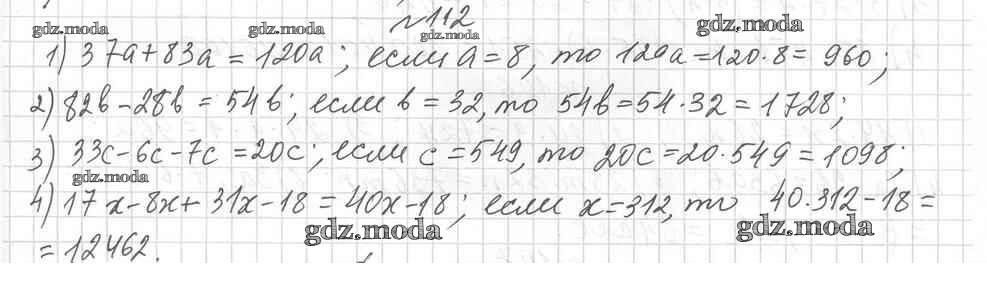 №112
gdz.moda gdz.moda gdz.moda gdz.moda
1) 37a+83a=120a; если a=8, то 120a=120·8=960;
2) 82b-28b=54b; если b=32, то 54b=54·32=1728;
3) 33c-6c-7c=20c; если c=549, то 20c=20·549=1098;
gdz.moda
4) 17x-8x+31x-18=40x-18; если x=312, то 40·312-18=
=12462.
gdz.moda gdz.moda